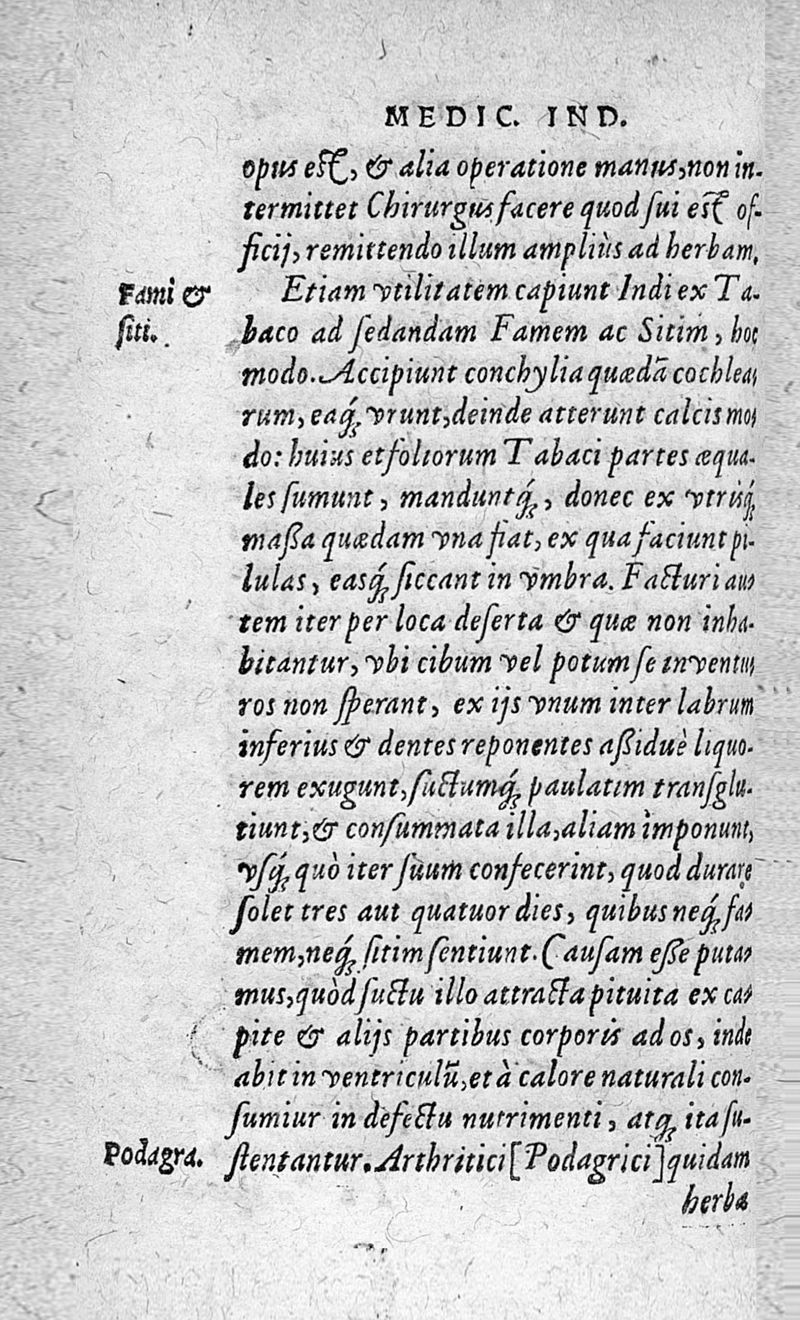 MEDIC. IND.
opus eſt, & alia operatione manus, non in-
termittet Chirurgus facere quod ſui eſt of-
ficij, remittendo illum ampliùs ad herbam.
Fami &
ſiti.
Etiam vtilitatem capiunt Indi ex Ta-
baco ad ſedandam Famem ac Sitim, hoc
modo. Accipiunt conchylia quædã cochlea-
rum, eaq́; vrunt, deinde atterunt calcis mo-
do: huius et foliorum Tabaci partes æqua-
les ſumunt, manduntq́;, donec ex vtrisq́;
maßa quædam vna fiat, ex qua faciunt pi-
lulas, easq́; ſiccant in vmbra. Facturi au-
tem iter per loca deſerta & quæ non inha-
bitantur, vbi cibum vel potum ſe inventu-
ros non ſperant, ex ijs vnum inter labrum
inferius & dentes reponentes aßiduè liquo-
rem exugunt, ſuctumq́; paulatim tranſglu-
tiunt, & conſummata illa, aliam ìmponunt,
vſq́; quò iter ſuum confecerint, quod durare
ſolet tres aut quatuor dies, quibus neq́; fa-
mem, neq́; ſitim ſentiunt. Cauſam eſſe puta-
mus, quòd ſuctu illo attracta pituita ex ca-
pite & alijs partibus corporis ad os, inde
abit in ventriculũ, et à calore naturali con-
ſumiur in defectu nutrimenti, atq; ita ſu-
Podagra.
ſtentantur. Arthritici [Podagrici] quidam
herba